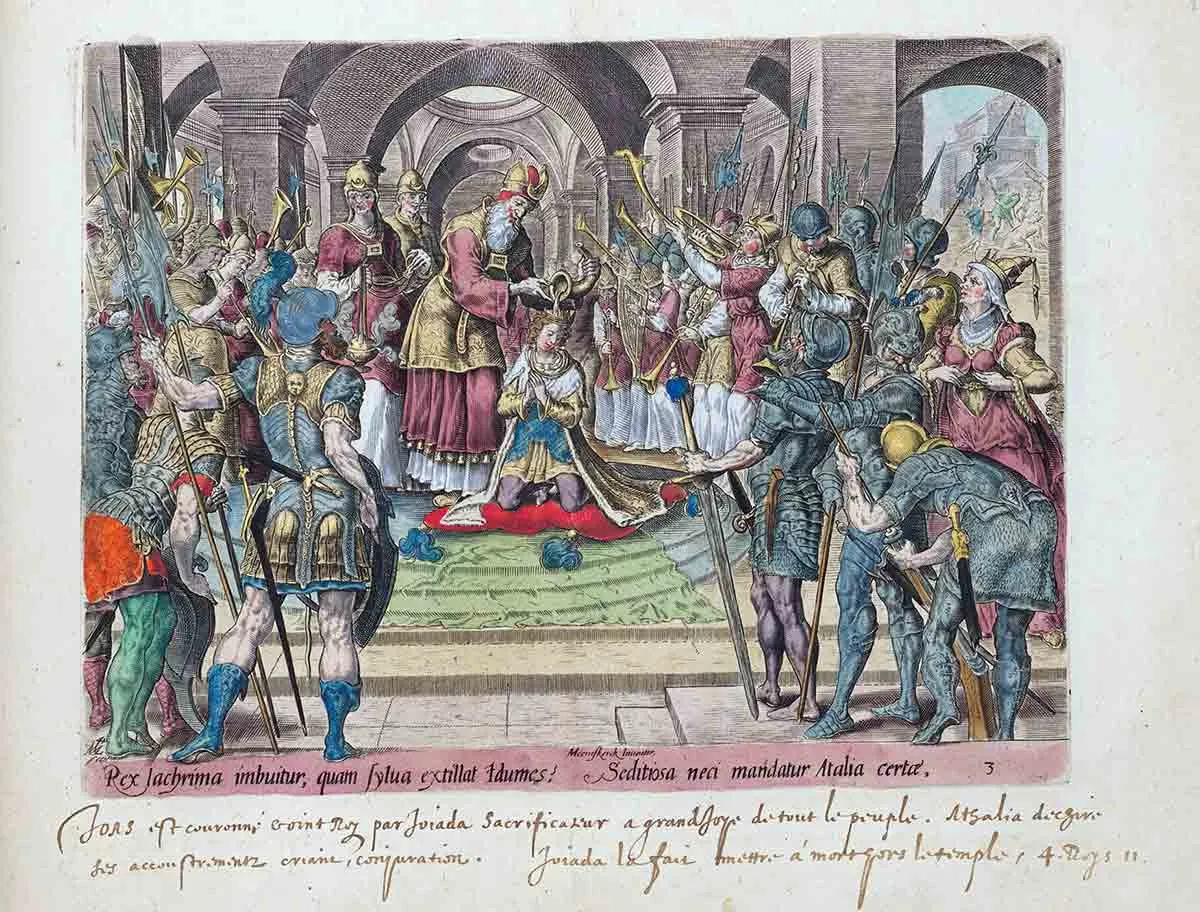 Meemskerck Inuentor,
Rex lachrima imbuitur, quam sylua extillat Idumes: Seditiosa neci mandatur Atalia certæ, 3
JOAS est couronné & oint Roy par Joiada Sacrificateur a grand Joye de tout le peuple. Athalia deschire
ses accoustrementz criant, conjuration. Joiada la fait mettre à mort hors le temple, 4. Roys 11.